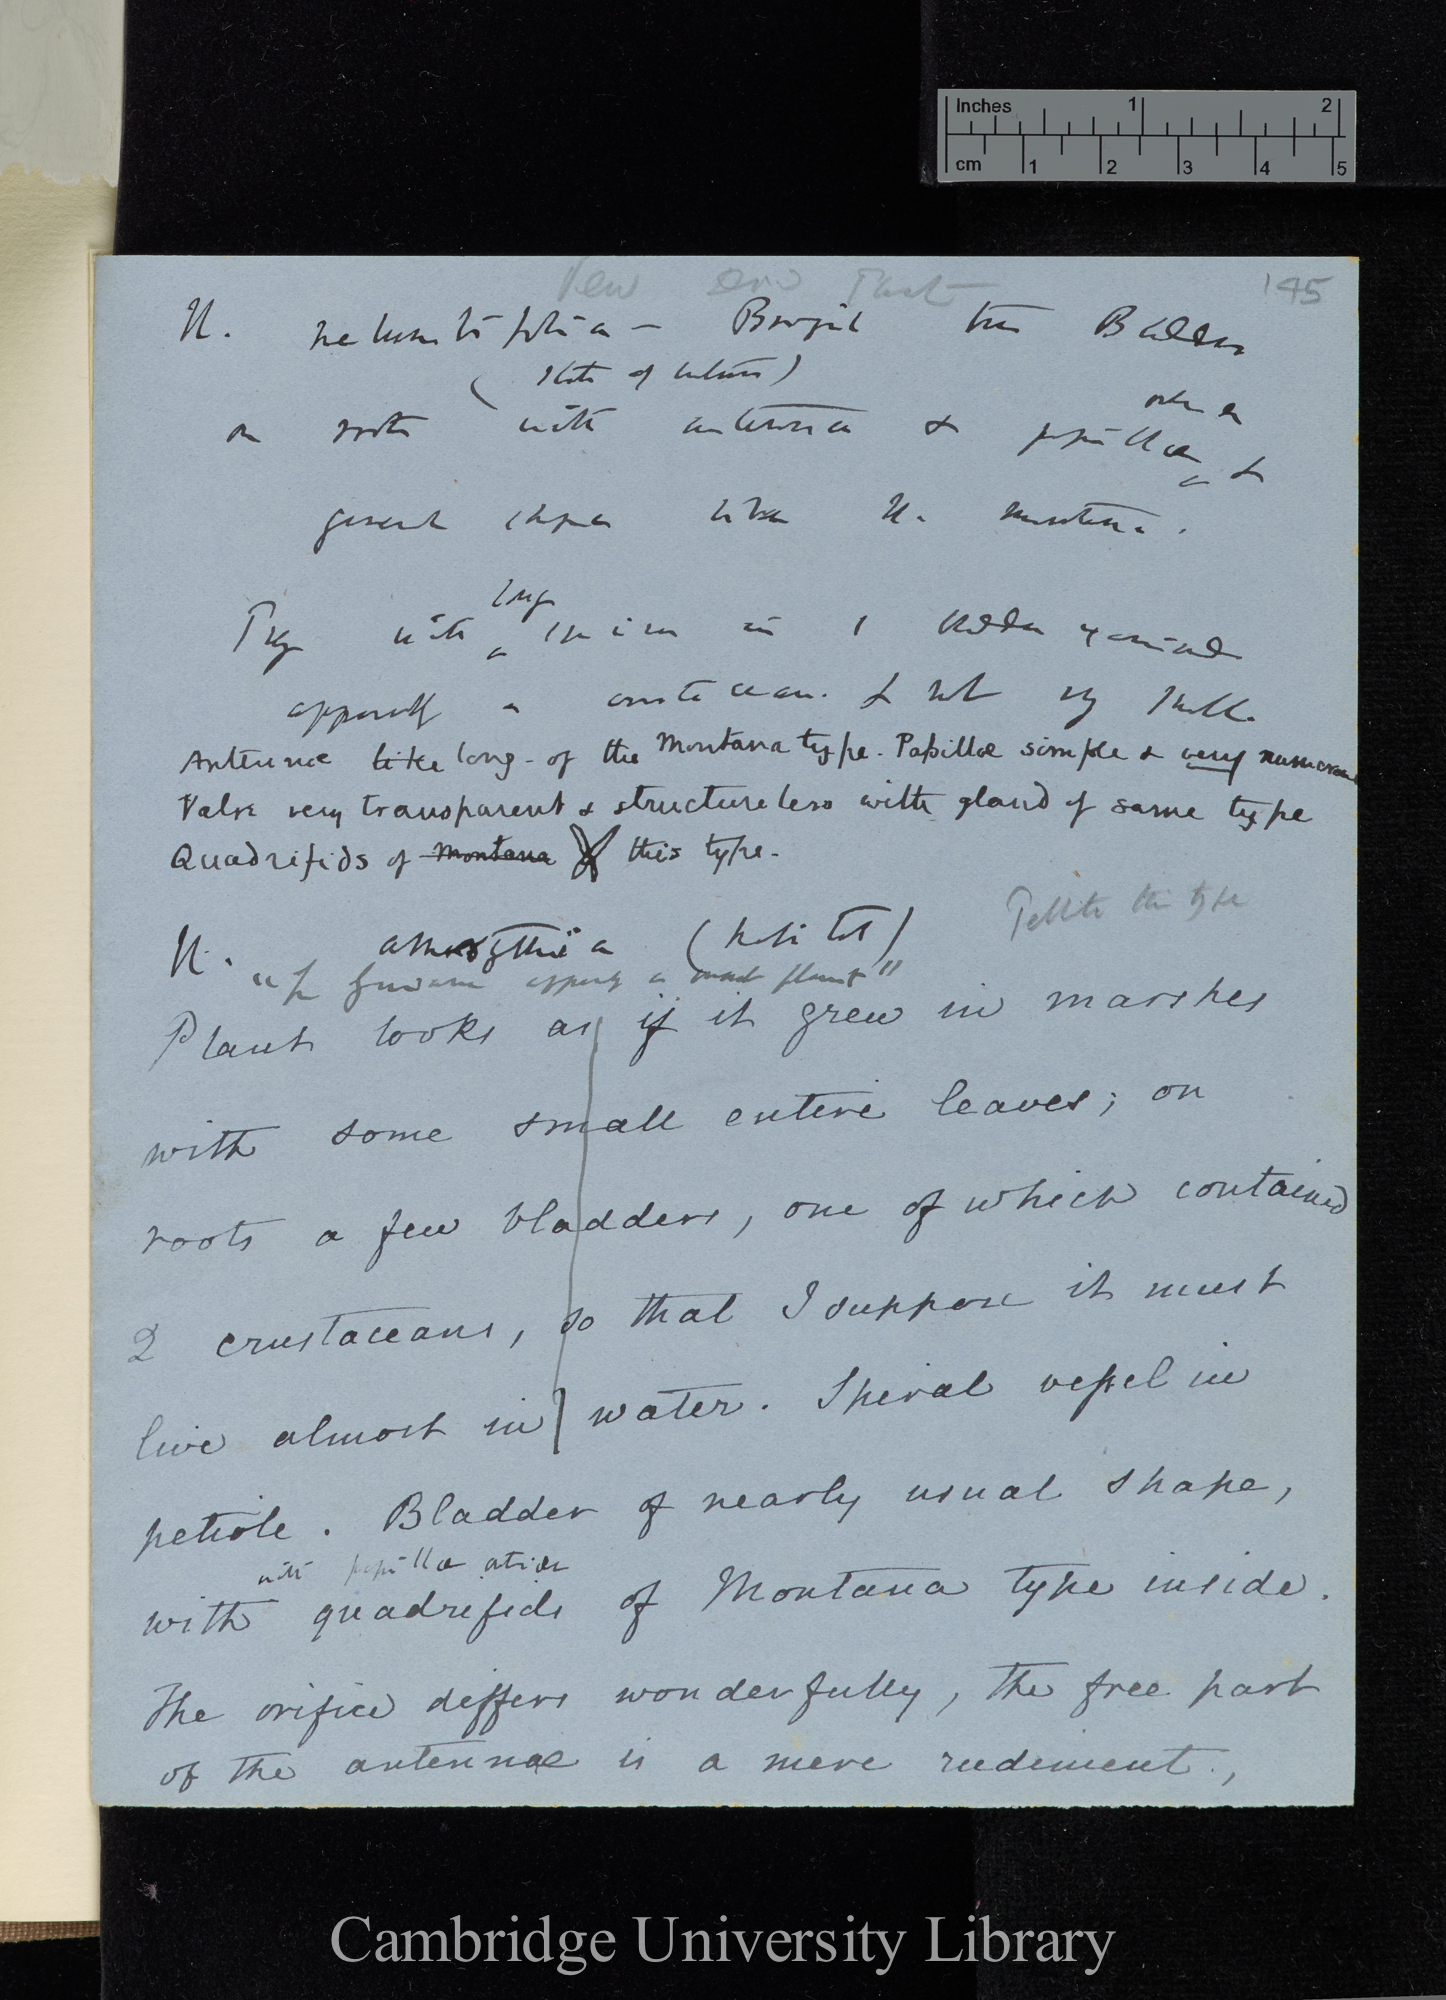 Inches 1 2
cm 1 2 3 4 5
145
U. nelumbifolia — Brazil
(State of
on roots with antennae & papillae &
general shape like U. montana.
long
with in 1 bladder examined
a crustacean. &
Antennae like long - of the Montana type. Papillae simple & very numerous
Valve very transparent & structureless with gland of same type
Quadrifids of Montana of this type.
the type
U. amethystina (habitat)
a plant"
Plant looks as if it grew in marshes
with some small entire leaves; on
roots a few bladders, one of which contained
2 crustaceans, so that I suppose it must
live almost in water. Spiral vessel in
petiole. Bladder of nearly usual shape,
with papillae
with quadrifids of Montana type inside.
The orifice differs wonderfully, the free part
of the antennae is a mere rudiment.,
Cambridge University Library